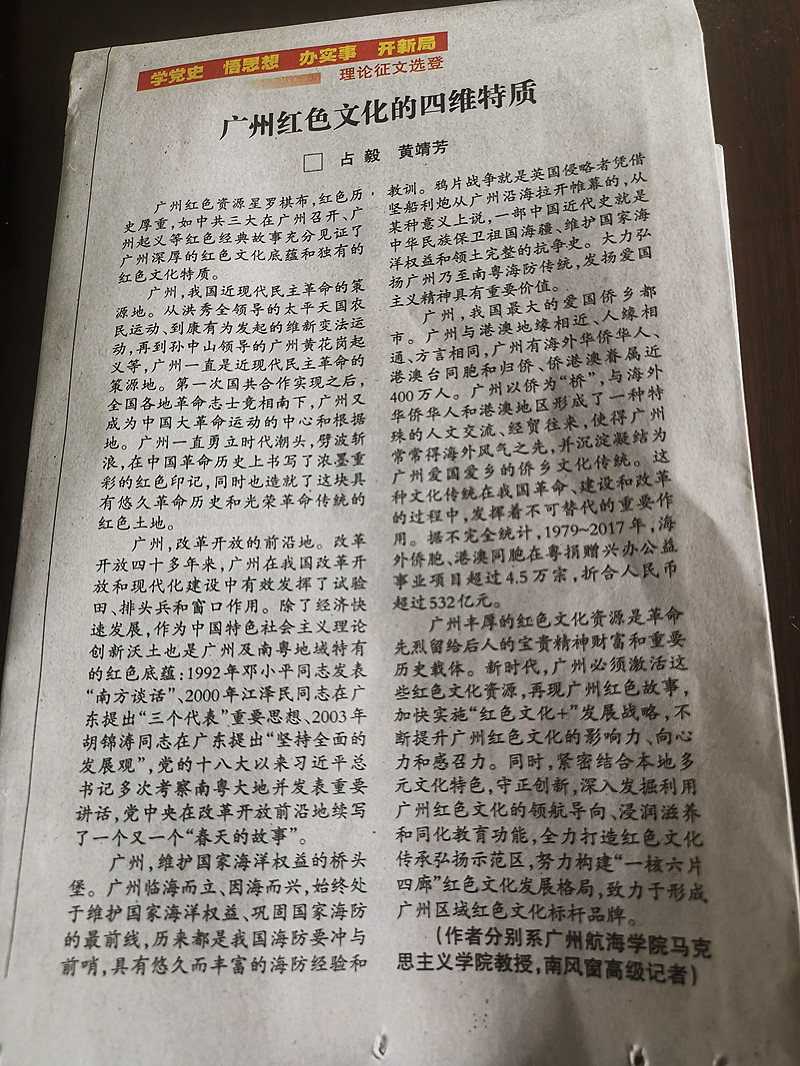 学党史 悟思想 办实事 开新局
理论征文选登
广州红色文化的四维特质
□ 占 毅 黄靖芳
广州红色资源星罗棋布,红色历
史厚重,如中共三大在广州召开、广
州起义等红色经典故事充分见证了
广州深厚的红色文化底蕴和独有的
红色文化特质。
广州,我国近现代民主革命的策
源地。从洪秀全领导的太平天国农
民运动、到康有为发起的维新变法运
动,再到孙中山领导的广州黄花岗起
义等,广州一直是近现代民主革命的
策源地。第一次国共合作实现之后,
全国各地革命志士竞相南下,广州又
成为中国大革命运动的中心和根据
地。广州一直勇立时代潮头,劈波斩
浪,在中国革命历史上书写了浓墨重
彩的红色印记,同时也造就了这块具
有悠久革命历史和光荣革命传统的
红色土地。
广州,改革开放的前沿地。改革
开放四十多年来,广州在我国改革开
放和现代化建设中有效发挥了试验
田、排头兵和窗口作用。除了经济快
速发展,作为中国特色社会主义理论
创新沃土也是广州及南粤地域特有
的红色底蕴:1992年邓小平同志发表
“南方谈话”、2000年江泽民同志在广
东提出“三个代表”重要思想、2003年
胡锦涛同志在广东提出“坚持全面的
发展观”,党的十八大以来习近平总
书记多次考察南粤大地并发表重要
讲话,党中央在改革开放前沿地续写
了一个又一个“春天的故事”。
广州,维护国家海洋权益的桥头
堡。广州临海而立、因海而兴,始终处
于维护国家海洋权益、巩固国家海防
的最前线,历来都是我国海防要冲与
前哨,具有悠久而丰富的海防经验和
教训。鸦片战争就是英国侵略者凭借
坚船利炮从广州沿海拉开帷幕的,从
某种意义上说,一部中国近代史就是
中华民族保卫祖国海疆、维护国家海
洋权益和领土完整的抗争史。大力弘
扬广州乃至南粤海防传统,发扬爱国
主义精神具有重要价值。
广州,我国最大的爱国侨乡都
市。广州与港澳地缘相近、人缘相
通、方言相同,广州有海外华侨华人、
港澳台同胞和归侨、侨港澳眷属近
400万人。广州以侨为“桥”,与海外
华侨华人和港澳地区形成了一种特
殊的人文交流、经贸往来,使得广州
常常得海外风气之先,并沉淀凝结为
广州爱国爱乡的侨乡文化传统。这
种文化传统在我国革命、建设和改革
的过程中,发挥着不可替代的重要作
用。据不完全统计,1979~2017年,海
外侨胞、港澳同胞在粤捐赠兴办公益
事业项目超过4.5万宗,折合人民币
超过532亿元。
广州丰厚的红色文化资源是革命
先烈留给后人的宝贵精神财富和重要
历史载体。新时代,广州必须激活这
些红色文化资源,再现广州红色故事,
加快实施“红色文化+”发展战略,不
断提升广州红色文化的影响力、向心
力和感召力。同时,紧密结合本地多
元文化特色,守正创新,深入发掘利用
广州红色文化的领航导向、浸润滋养
和同化教育功能,全力打造红色文化
传承弘扬示范区,努力构建“一核六片
四廊”红色文化发展格局,致力于形成
广州区域红色文化标杆品牌。
(作者分别系广州航海学院马克
思主义学院教授,南风窗高级记者)